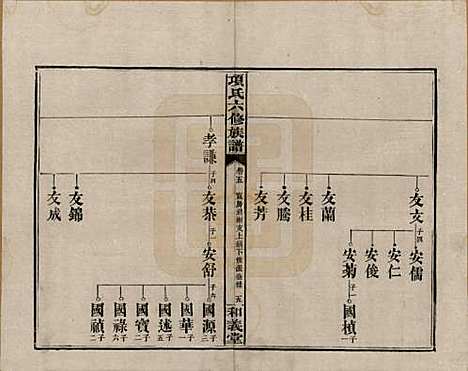 友文 子四
安儒
安仁
安俊
安菊 子一
國楨 子一
友蘭
友桂
友騰
友芳
項氏六修族譜
卷五
五
和義堂
孝謙 子四
友恭 子一
安舒 子六
國源 子三
國華 子一
國述 子五
國寶 子二
國祿 子六
國禎 子二
友錦
友成